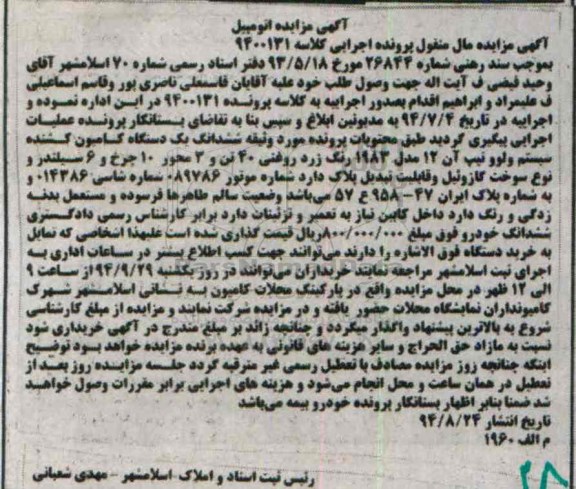 آگهی مزایده اتومبیل
آگهی مزایده مال منقول پرونده اجرایی کلاسه ۹۴۰۰۱۳۱
بموجب سند رهنی شماره ۲۶۸۴۴ مورخ ۹۳/۵/۱۸ دفتر اسناد رسمی شماره ۷۰ اسلامشهر آقای
وحید فیضی ف آیت اله جهت وصول طلب خود علیه آقایان قاسمعلی ناصری پور وقاسم اسماعیلی
ف علیمراد و ابراهیم اقدام بصدور اجراییه به کلاسه پرونده ۹۴۰۰۱۳۱ در این اداره نموده و
اجراییه در تاریخ ۹۴/۷/۴ به مدیونین ابلاغ و سپس بنا به تقاضای بستانکار پرونده عملیات
اجرایی پیگیری گردید طبق محتویات پرونده مورد وثیقه ششدانگ یک دستگاه کامیون کشنده
سیستم ولوو تیپ آن ۱۲ مدل ۱۹۸۳ رنگ زرد روغنی ۴۰ تن و ۳ محور ۱۰ چرخ و ۶ سیلندر و
نوع سوخت گازوئیل وقابلیت تبدیل پلاک دارد شماره موتور ۰۸۹۷۸۶ شماره شاسی ۰۱۴۳۸۶ و
به شماره پلاک ایران ۴۷-۹۵۸ ع ۵۷ می‌باشد وضعیت سالم ظاهرها فرسوده و مستعمل بدنه
زدگی و رنگ دارد داخل کابین نیاز به تعمیر و تزئینات دارد برابر کارشناس رسمی دادگستری
ششدانگ خودرو فوق مبلغ ۸۰۰/۰۰۰/۰۰۰ریال قیمت گذاری شده است علیهذا اشخاصی که تمایل
به خرید دستگاه فوق الاشاره را دارند می‌توانند جهت کسب اطلاع بیشتر در ساعات اداری به
اجرای ثبت اسلامشهر مراجعه نمایند خریداران می‌توانند در روز یکشنبه ۹۴/۹/۲۹از ساعت ۹
الی ۱۲ ظهر در محل مزایده واقع در پارکینگ محلات کامیون به نشانی اسلامشهر شهرک
کامیونداران نمایشگاه محلات حضور یافته و در مزایده شرکت نمایند و مزایده از مبلغ کارشناسی
شروع به بالاترین پیشنهاد واگذار میگردد و چنانچه زائد بر مبلغ مندرج در آگهی خریداری شود
نسبت به مازاد حق الحراج و سایر هزینه های قانونی به عهده برنده مزایده خواهد بود توضیح
اینکه چنانچه روز مزایده مصادف با تعطیل رسمی غیر مترقبه گردد جلسه مزایده روز بعد از
تعطیل در همان ساعت و محل انجام می‌شود و هزینه های اجرایی برابر مقررات وصول خواهد
شد ضمنا بنابر اظهار بستانکار پرونده خودرو بیمه می‌باشد
تاریخ انتشار ۹۴/۸/۲۴
م الف ۱۹۶۰
رئیس ثبت اسناد و املاک اسلامشهر - مهدی شعبانی